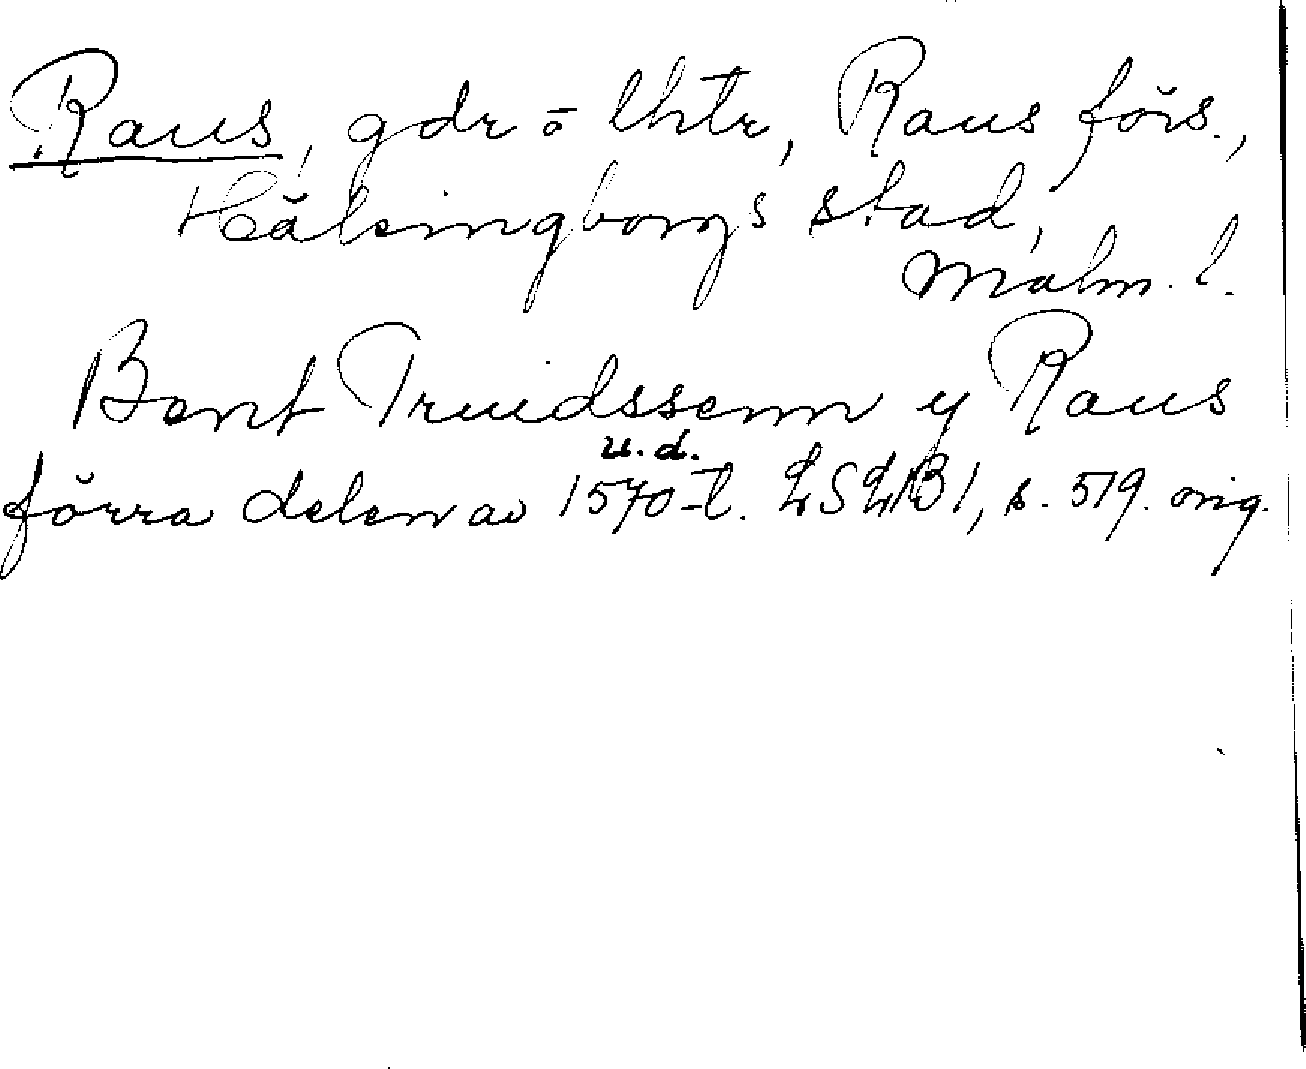 Raus, gdr o lhtr, Raus förs.,
Hälsingborgs stad,
Malm. l.
Bent Truidssenn y Raus
u. d.
förra delen av 1570-t. LSLRB 1, s. 519. orig.